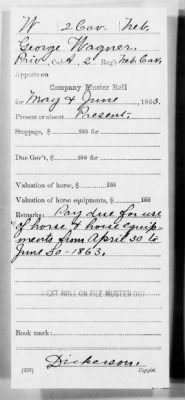 W 2 Cav. Neb.
George Wagner.
Priv., Co. A, 2 Reg't Neb. Cav.
Appears on
Company Muster Roll
for May & June, 1863.
Present or absent Present.
Stoppage, $ 100 for
Due Gov't, $ 100 for
Valuation of horse, $ 100
Valuation of horse equipments, $ 100
Remarks: Pay due for use
of horse & horse equip-
ments from April 30 to
June 30-1863.
NEXT ROLL ON FILE MUSTER OUT
Book mark:
Dickerson.
(358) Copyist.